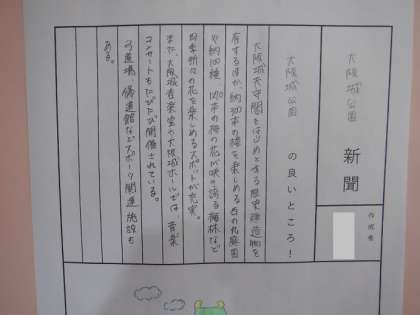 大阪城公園
新聞
作成者
大阪城公園
の良いところ!
大阪城天守閣をはじめとする歴史建造物を
有するほか、約300本の桜を楽しめる西の丸庭園
や約100種 1270本の梅の花が咲き誇る梅林など
四季折々の花を楽しめるスポットが充実。
また、大阪城音楽堂や大阪城ホールでは、音楽
コンサートもたびたび開催されている。
弓道場 修道館などスポーツ関連施設も
ある。